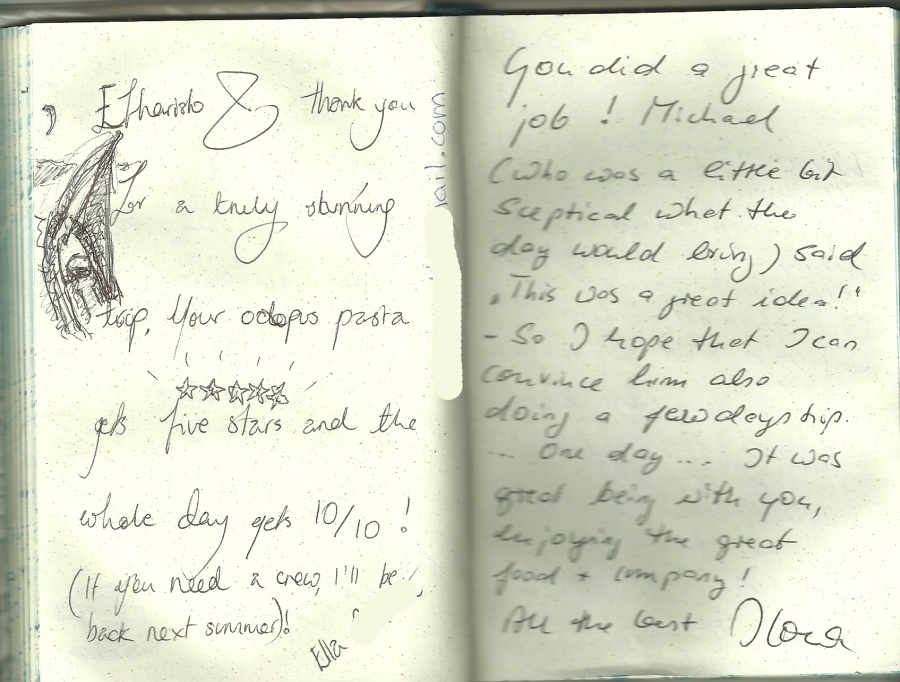 Efharisto & thank you
For a truly stunning
trip. Your octopus pasta
gets five stars and the
whole day gets 10/10!
(If you need a crew, I'll be
back next summer)!
Ella
ail.com
You did a great
job! Michael
(who was a little bit
sceptical what the
day would bring) said
„This was a great idea!“
- So I hope that I can
convince him also
doing a few days trip.
... One day ... It was
great being with you,
enjoying the great
food + company!
All the best